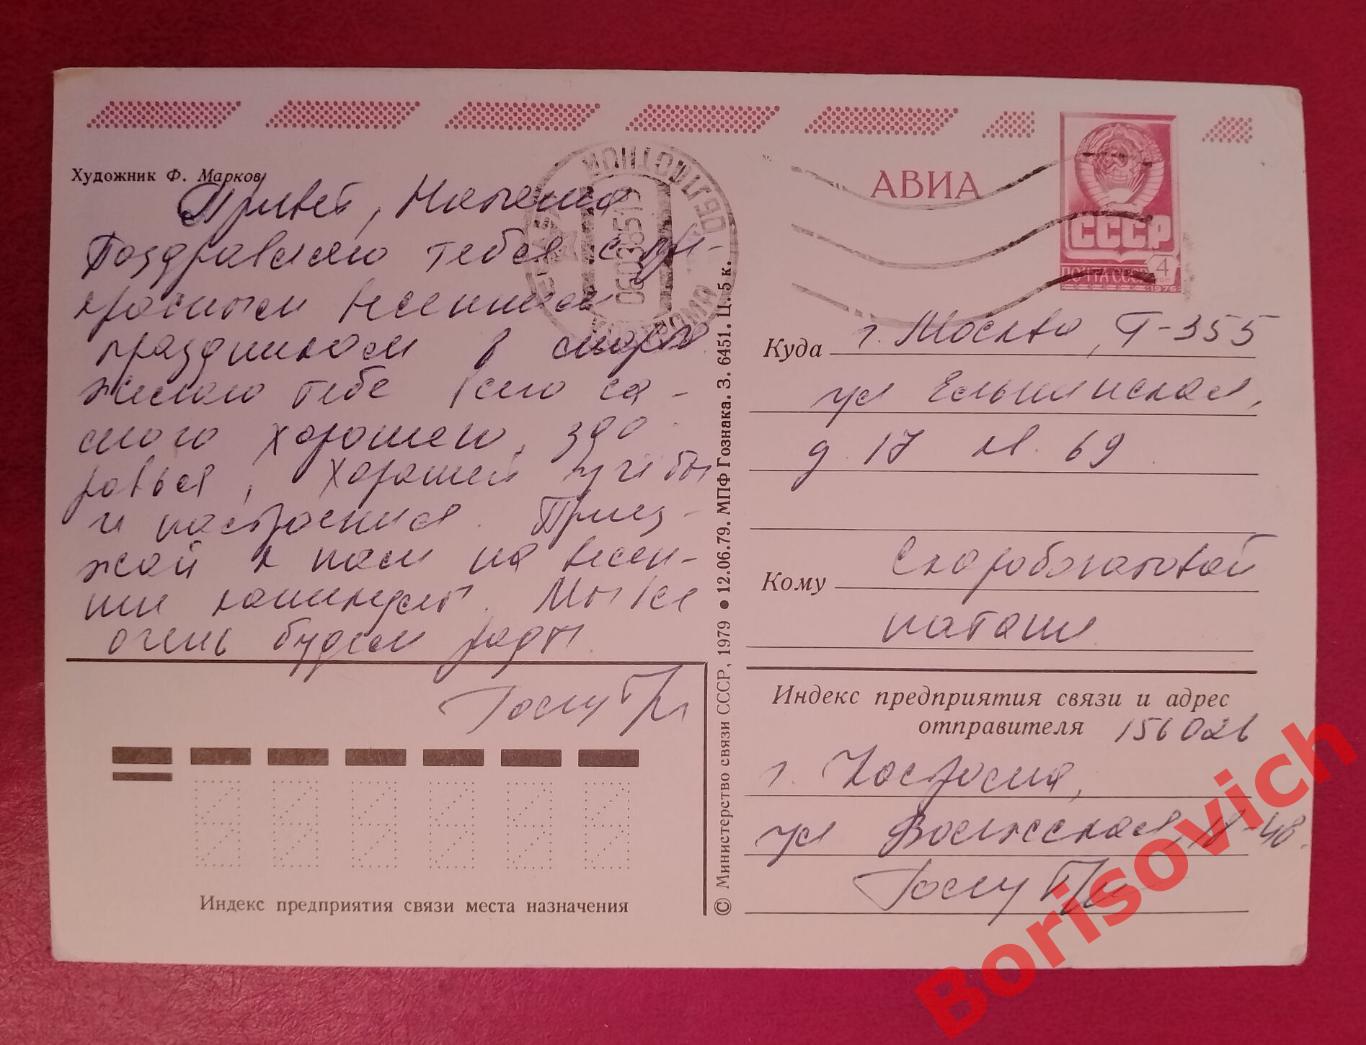 Художник Ф. Марков
Привет, Наташа
Поздравляю тебя с пре-
красным весенним
праздником 8 марта
желаю тебе всего са-
мого хорошего, здо
ровья, хорошей учебы
и настроения. Приез-
жай к нам на весен-
ние каникулы. Мы все
очень будем рады.
Индекс предприятия связи места назначения
© Министерство связи СССР, 1979 • 12.06.79. МПФ Гознака. З. 6451. Ц. 5 к.
КОСТРОМА ПОЧТАМТ
06038519
АВИА
СССР
ПОЧТА СССР 4
1976
Куда г. Москва, Г-355
ул Ельнинская,
д. 17 кв. 69
Кому Скоробогатовой
Наташи
Индекс предприятия связи и адрес
отправителя 156026
г. Кострома,
ул Волжская,
Borisovich